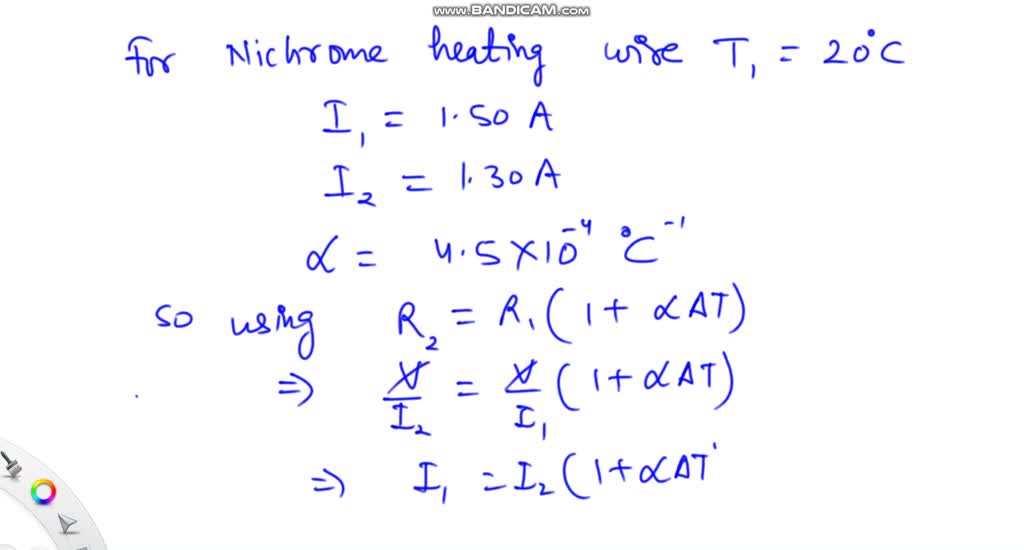 www.BANDICAM.com
for Nichrome heating wire T₁ = 20°C
I₁ = 1.50 A
I₂ = 1.30 A
α = 4.5×10⁻⁴ °C⁻¹
so using R₂ = R₁(1+ αΔT)
⇒ V/I₂ = V/I₁ (1+αΔT)
⇒ I₁ = I₂(1+αΔT